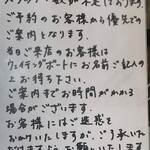 ご予約のお客様から優先での
ご案内となります。
当日ご来店のお客様は
ウェイティングボードにお名前ご記入の
上お待ち下さい。
ご案内までお時間がかかる
場合がございます。
お客様にはご迷惑を
おかけいたしますが、ご了承いた